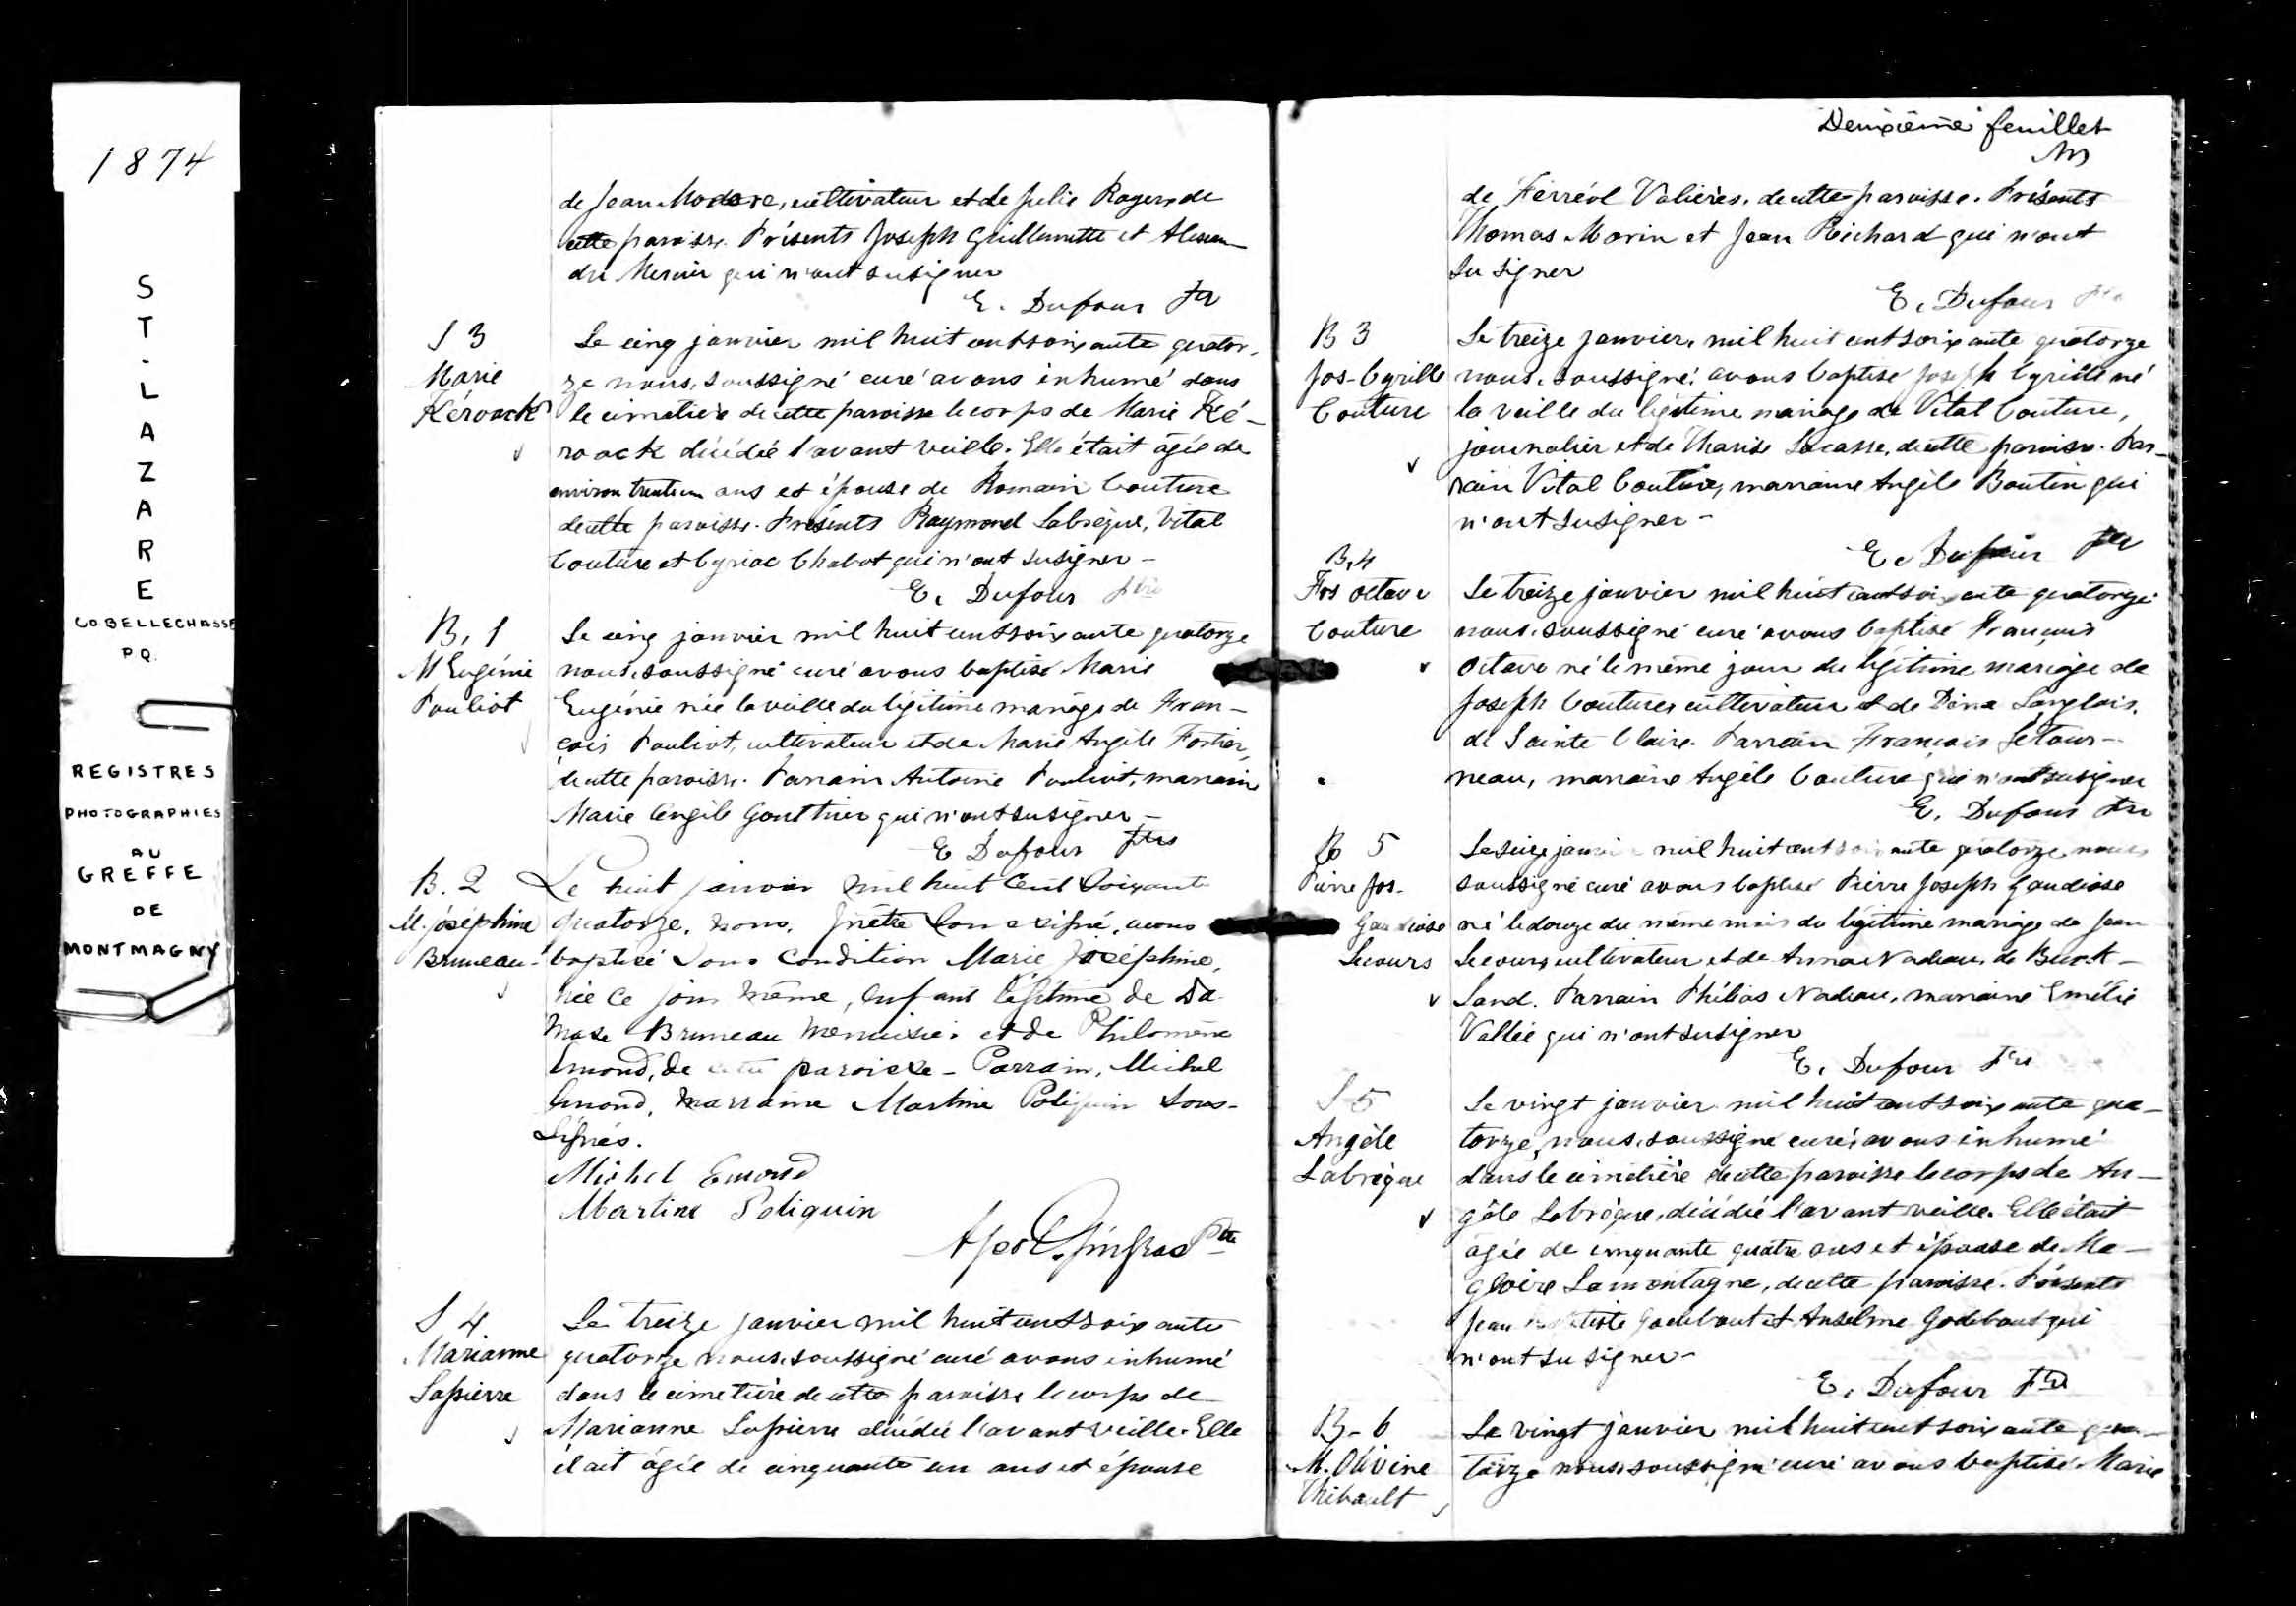 1874
ST-LAZARE
CO BELLECHASSE
P.Q.
REGISTRES
PHOTOGRAPHIES
AU
GREFFE
DE
MONTMAGNY
de Jean , cultivateur et de Julie Roger, de
cette paroisse. Présents Joseph Guillemette et Alexan
dre Mercier qui n'ont su signer
E. Dufour Ptr
S 3
Marie
Kéroack
Le cinq janvier mil huit cent soixante quator-
ze nous, soussigné curé avons inhumé dans
le cimetière de cette paroisse le corps de Marie Ké-
roack décédée l'avant veille. Elle était âgée de
environ ans et épouse de Romain Couture
de cette paroisse. Présents Raymond Labrèque, Vital
Couture et Cyriac Chabot qui n'ont su signer -
E. Dufour Ptre
B. 1
M Eugénie
Pouliot
Le cinq janvier mil huit cent soixante quatorze
nous, soussigné curé avons baptisé Marie
Eugénie née la veille du légitime mariage de Fran-
çois Pouliot, cultivateur et de Marie Angèle Fortier,
de cette paroisse. Parrain Antoine Pouliot, marraine
Marie Angèle Gonthier qui n'ont su signer -
E Dufour Ptre
B. 2
M. Joséphine
Bruneau
Le huit janvier mil huit cent soixante
quatorze, nous, prêtre soussigné, avons
baptisé sous condition Marie Joséphine,
née ce jour même, enfant légitime de Da-
mase Bruneau menuisier et de Philomène
Emond, de cette paroisse - Parrain, Michel
Emond, marraine Martine Poliquin sous-
signés.
Michel Emond
Martine Poliquin
Gingras Ptre
S 4
Marianne
Lapierre
Le treize janvier mil huit cent soixante
quatorze nous, soussigné curé avons inhumé
dans le cimetière de cette paroisse le corps de
Marianne Lapierre décédée l'avant veille. Elle
était âgée de cinquante un ans et épouse
Deuxième feuillet
de Ferréol Valières, de cette paroisse. Présents
Thomas Morin et Jean Richard qui n'ont
su signer
E. Dufour Ptre
B 3
Jos-Cyrille
Couture
Le treize janvier, mil huit cent soixante quatorze
nous, soussigné, avons baptisé Joseph Cyrille né
la veille du légitime mariage de Vital Couture,
journalier et de Lacasse, de cette paroisse. Par-
rain Vital Couture, marraine Angèle Boutin qui
n'ont su signer -
E. Dufour Ptr
B. 4
Frs Octave
Couture
Le treize janvier mil huit cent soixante quatorze
nous, soussigné curé avons baptisé François
Octave né le même jour du légitime mariage de
Joseph Couture, cultivateur et de Dina Langlois,
de Sainte Claire. Parrain François Létour-
neau, marraine Angèle Couture qui n'ont su signer
E. Dufour Ptr
B 5
Pierre Jos.
Gaudiose
Lecours
Le seize janvier mil huit cent soixante quatorze, nous
soussigné curé avons baptisé Pierre Joseph Gaudiose
né le douze du même mois du légitime mariage de Jean
Lecours, cultivateur et de Anna Nadeau, de Buck-
land. Parrain Philias Nadeau, marraine Emélie
Vallée qui n'ont su signer
E. Dufour Ptre
S 5
Angèle
Labrèque
Le vingt janvier mil huit cent soixante qua-
torze, nous, soussigné curé, avons inhumé
dans le cimetière de cette paroisse le corps de An-
gèle Labrèque, décédée l'avant veille. Elle était
âgée de cinquante quatre ans et épouse de Ma-
gloire Lamontagne, de cette paroisse. Présents
Jean Baptiste Godebout et Anselme Godebout qui
n'ont su signer -
E. Dufour Ptre
B-6
M. Olivine
Thibault
Le vingt janvier mil huit cent soixante qua-
torze nous, soussigné curé avons baptisé Marie